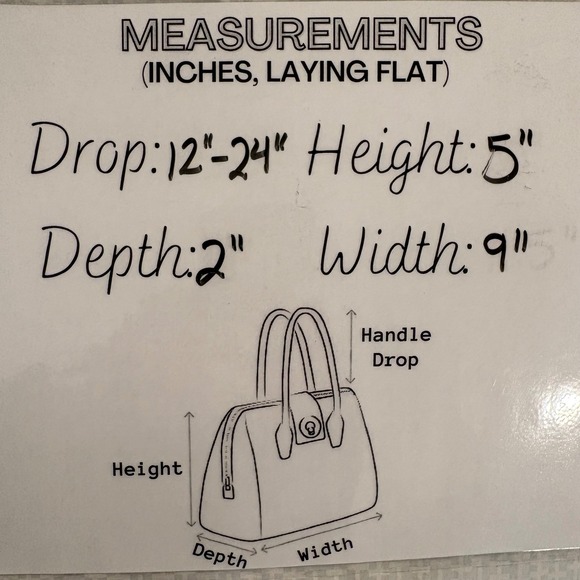 MEASUREMENTS
(INCHES, LAYING FLAT)
Drop: 12"-24" Height: 5"
Depth: 2" Width: 9"
Handle
Drop
Height
Depth Width